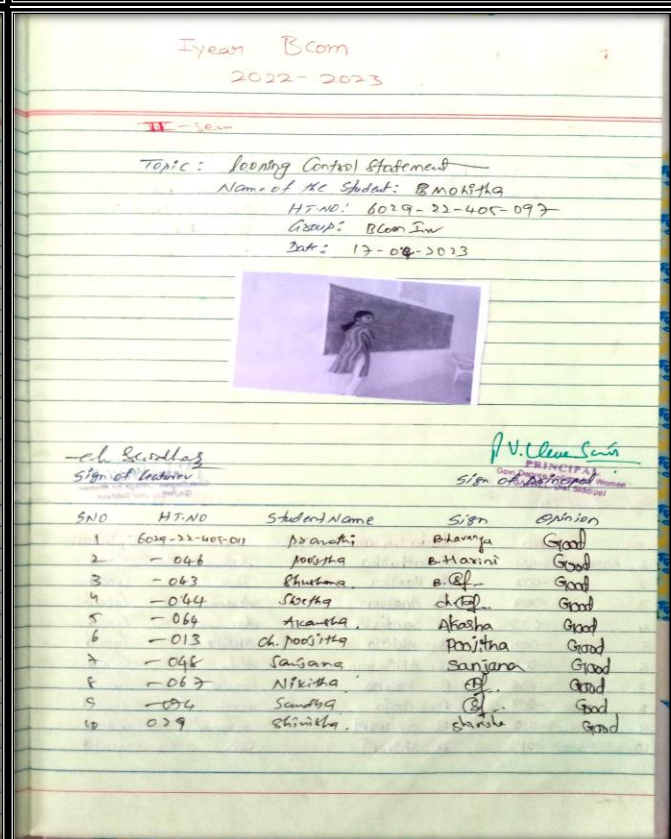 I year BCom
2022-2023
II-Sem
Topic: looping Control Statement
Name of the Student: B Mohitha
HT.NO: 6029-22-405-097
Group: BCom
Date: 17-04-2023
Sign of lecturer
PRINCIPAL
Sign of principal
SNO HT.NO Student Name Sign Opinion
1 6029-22-405-011 pravathi B.Lavanya Good
2 - 046 poojitha B.Harini Good
3 - 043 Shushma B. Good
4 - 044 Swetha ch. Good
5 - 064 Akansha. Akasha Good
6 - 013 ch. poojitha Poojitha Good
7 - 048 Sanjana Sanjana Good
8 - 067 Nikitha Good
9 Sandhya Good
10 029 Shirisha. Shirisha Good